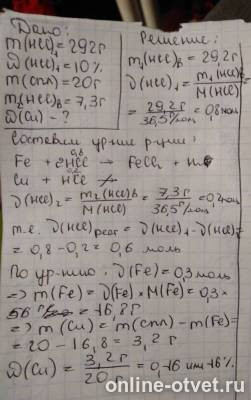 Дано:
m(HCl)₁=292г
ω(HCl)₁=10%
m(спл)=20г
m₂(HCl)в=7,3г
ω(Cu)-?
Решение:
m₁(HCl)в=29,2г
ν(HCl)₁=m₁(HCl)в/M(HCl)
=29,2г/36,5г/моль=0,8моль
Составим ур-ние р-ции:
Fe + 2HCl → FeCl₂ +
Cu + HCl ↛
ν(HCl)₂=m₂(HCl)в/M(HCl)=7,3г/36,5г/моль=0,2моль
т.е. ν(HCl)реаг=ν(HCl)₁-ν(HCl)₂
=0,8-0,2=0,6 моль
По ур-нию: ν(Fe)=0,3моль
=> m(Fe)=ν(Fe)×M(Fe)=0,3×
56 г/моль=16,8г
=> m(Cu)=m(спл)-m(Fe)=
=20-16,8=3,2г
ω(Cu)=3,2г/20г=0,16 или 16%
online-otvet.ru